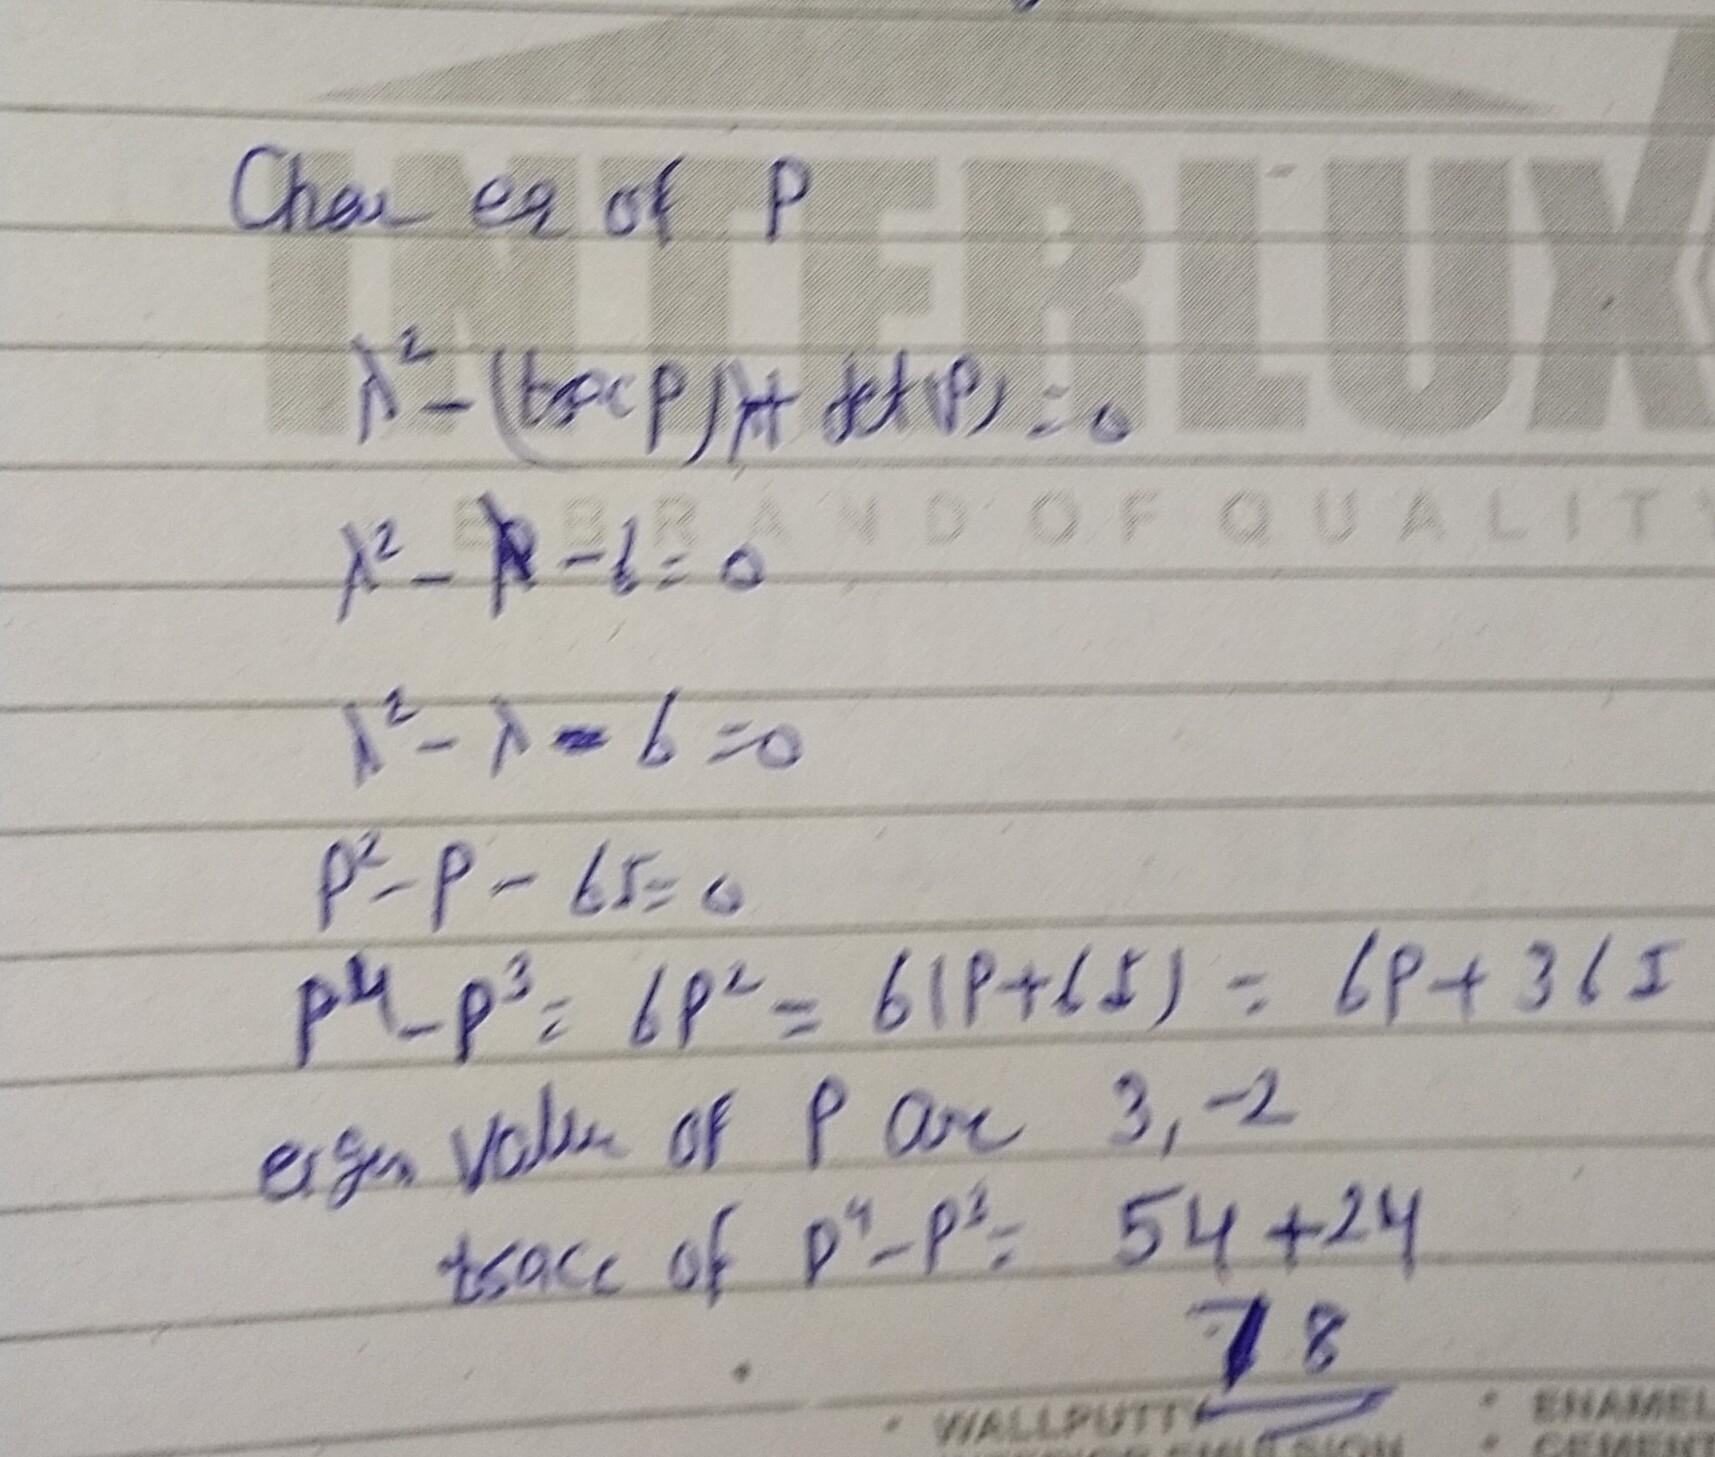 INTERLUX
E BRAND OF QUALITY
Char eq of P
λ² - (trac P)λ + det(P) = 0
λ² - λ - 6 = 0
λ² - λ - 6 = 0
P² - P - 6I = 0
P⁴ - P³ = 6P² = 6(P+6I) = 6P + 36I
eigen value of P are 3, -2
trace of P⁴ - P³ = 54 + 24
78
• WALLPUTTY • ENAMEL
INTERIOR EMULSION • CEMENT